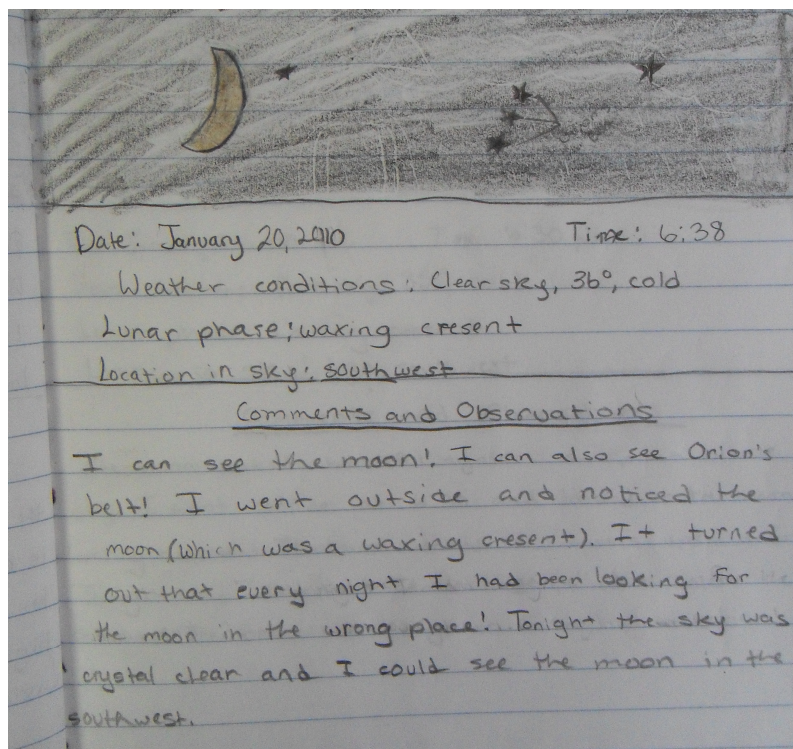 Date: January 20, 2010 Time: 6:38
Weather conditions: Clear sky, 36°, cold
Lunar phase: waxing cresent
Location in sky: southwest
Comments and Observations
I can see the moon! I can also see Orion's
belt! I went outside and noticed the
moon (which was a waxing cresent). It turned
out that every night I had been looking for
the moon in the wrong place! Tonight the sky was
crystal clear and I could see the moon in the
southwest.